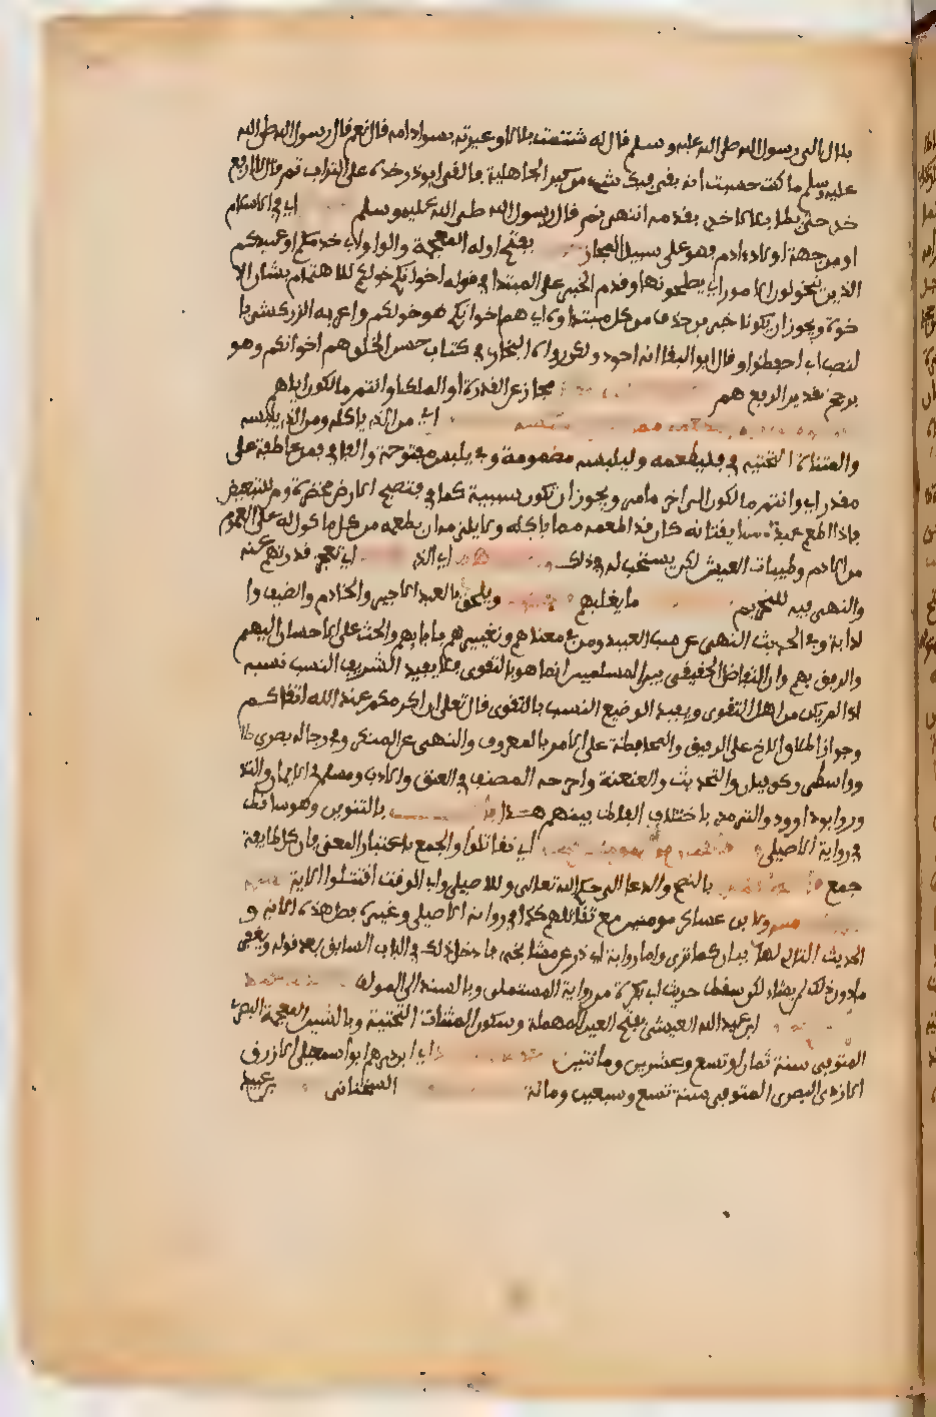 بلال الى رسول الله صلى الله عليه وسلم فقال له شتمت بلالا وعيرته بسواد امه قال نعم قال رسول الله صلى الله
عليه وسلم ما كنت حسبت انه بقي فيك شيء من كبر الجاهلية فالقى ابو ذر خده على التراب ثم قال لا ارفع
خدي حتى يطا بلال خدي بقدمه انتهى ثم قال رسول الله صلى الله عليه وسلم اي في الاسلام
او من جهة اولاد ادم فهو على سبيل المجاز بفتح اوله المعجمة والواو اي خدمكم او عبيدكم
الذين يتخولون الامور اي يصلحونها وقدم الخبر على المبتدا في قوله اخوانكم خولكم للاهتمام بشان الا
خوة ويجوز ان يكونا خبرين حذف من كل مبتداه اي هم اخوانكم هو خولكم واعربه الزركشي با
لنصب اي احفظوا وقال ابو البقا انه اجود ولكن رواه البخاري في كتاب حسن الخلق هم اخوانكم وهو
يرجح تقدير الرفع هم مجاز عن القدرة او الملك اي وانتم مالكون اياهم
اي من الذي ياكله ومن الذي يلبسه
والمثناة التحتية في فليطعمه وليلبسه مضمومة وفي يلبس مفتوحة والفا في فمن عاطفة على
مقدر اي وانتم مالكون الى اخر ما مر ويجوز ان تكون سببية كما في فتصبح الارض مخضرة ومن للتبعيض
فاذا اطعم عبده مما يقتاته كان قد اطعمه مما ياكله ولا يلزمه ان يطعمه من كل ماكوله على العموم
من الادم وطيبات العيش لكن يستحب له ذلك اي الذي اي تعجز قدرتهم عنه
والنهي فيه للتحريم ما يغلبهم ويلحق بالعبد الاجير والخادم والضيف وا
لدابة وفي الحديث النهي عن سب العبيد ومن في معناهم وتعييرهم بابايهم والحث على الاحسان اليهم
والرفق بهم وان التفاضل الحقيقي بين المسلمين انما هو بالتقوى فلا يفيد الشريف النسب نسبه
اذا لم يكن من اهل التقوى ويفيد الوضيع النسب بالتقوى قال تعالى ان اكرمكم عند الله اتقاكم
وجواز اطلاق الاخ على الرقيق والمحافظة على الامر بالمعروف والنهي عن المنكر وفي رجاله بصري
وواسطي وكوفيان والتحديث والعنعنة واخرجه المصنف في العتق والادب ومسلم في الايمان والنذ
ور وابو داوود والترمذي باختلاف الفاظ بينهم هذا بالتنوين وهو ساقط
في رواية الاصيلي اي تقاتلوا والجمع باعتبار المعنى فان كل طايفة
جمع بالنصح والدعا الى حكم الله تعالى وللاصيلي وابي الوقت اقتتلوا الاية
ولابن عساكر مومنين مع تقاتلهم كذا في رواية الاصيلي وغيره فصل هذه الاية و
الحديث التالي لها بباب كما ترى واما رواية ابي ذر عن مشايخه فادخل ذلك في الباب السابق بعد قوله ويغفر
ما دون ذلك لمن يشاء لكن سقط حديث ابي بكرة من رواية المستملي وبالسند الى المولف
ابن عبد الله العيشي بفتح العين المهملة وسكون المثناة التحتية وبالشين المعجمة البصري
المتوفى سنة ثمان او تسع وعشرين ومائتين اي ابن درهم ابو اسمعيل الازرق
الازدي البصري المتوفى سنة تسع وسبعين ومائة السختياني